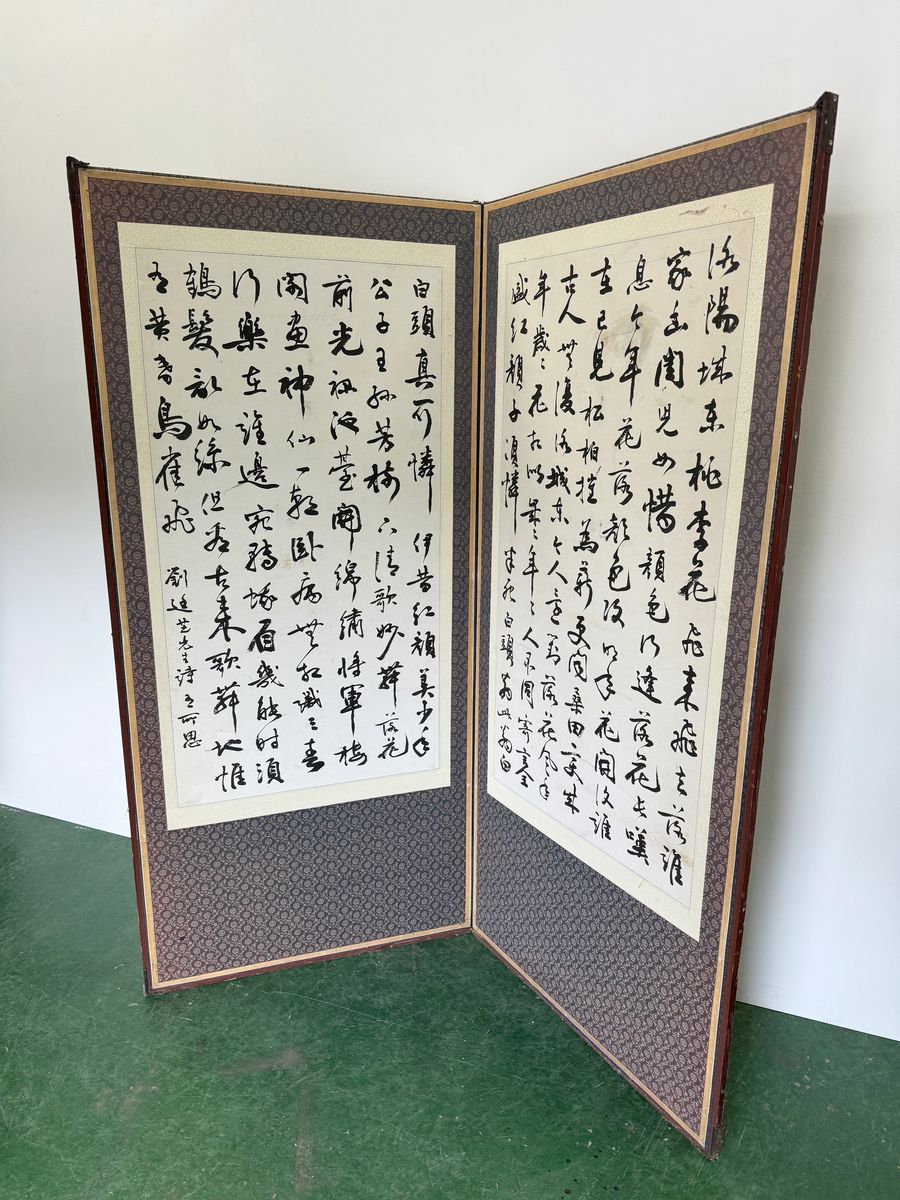 洛陽城東桃李花飛来飛去落誰
家幽閨兒女惜顏色行逢落花長嘆
息今年花落顏色改明年花開復誰
在已見松柏摧為薪更聞桑田変成
古人無復洛城東今人還對落花風年
年歲々花相似歲々年々人不同寄言全
盛紅顏子須憐半死白頭翁此翁白
白頭真可憐伊昔紅顏美少年
公子王孫芳樹下清歌妙舞落花
前光祿池臺開綿繡將軍樓
閣畫神仙一朝臥病無相識三春
行樂在誰邊宛轉蛾眉幾能時須
鶴髮亂如絲但看古来歌舞地惟
有黄昏鳥雀飛 劉廷芝先生詩 有所思